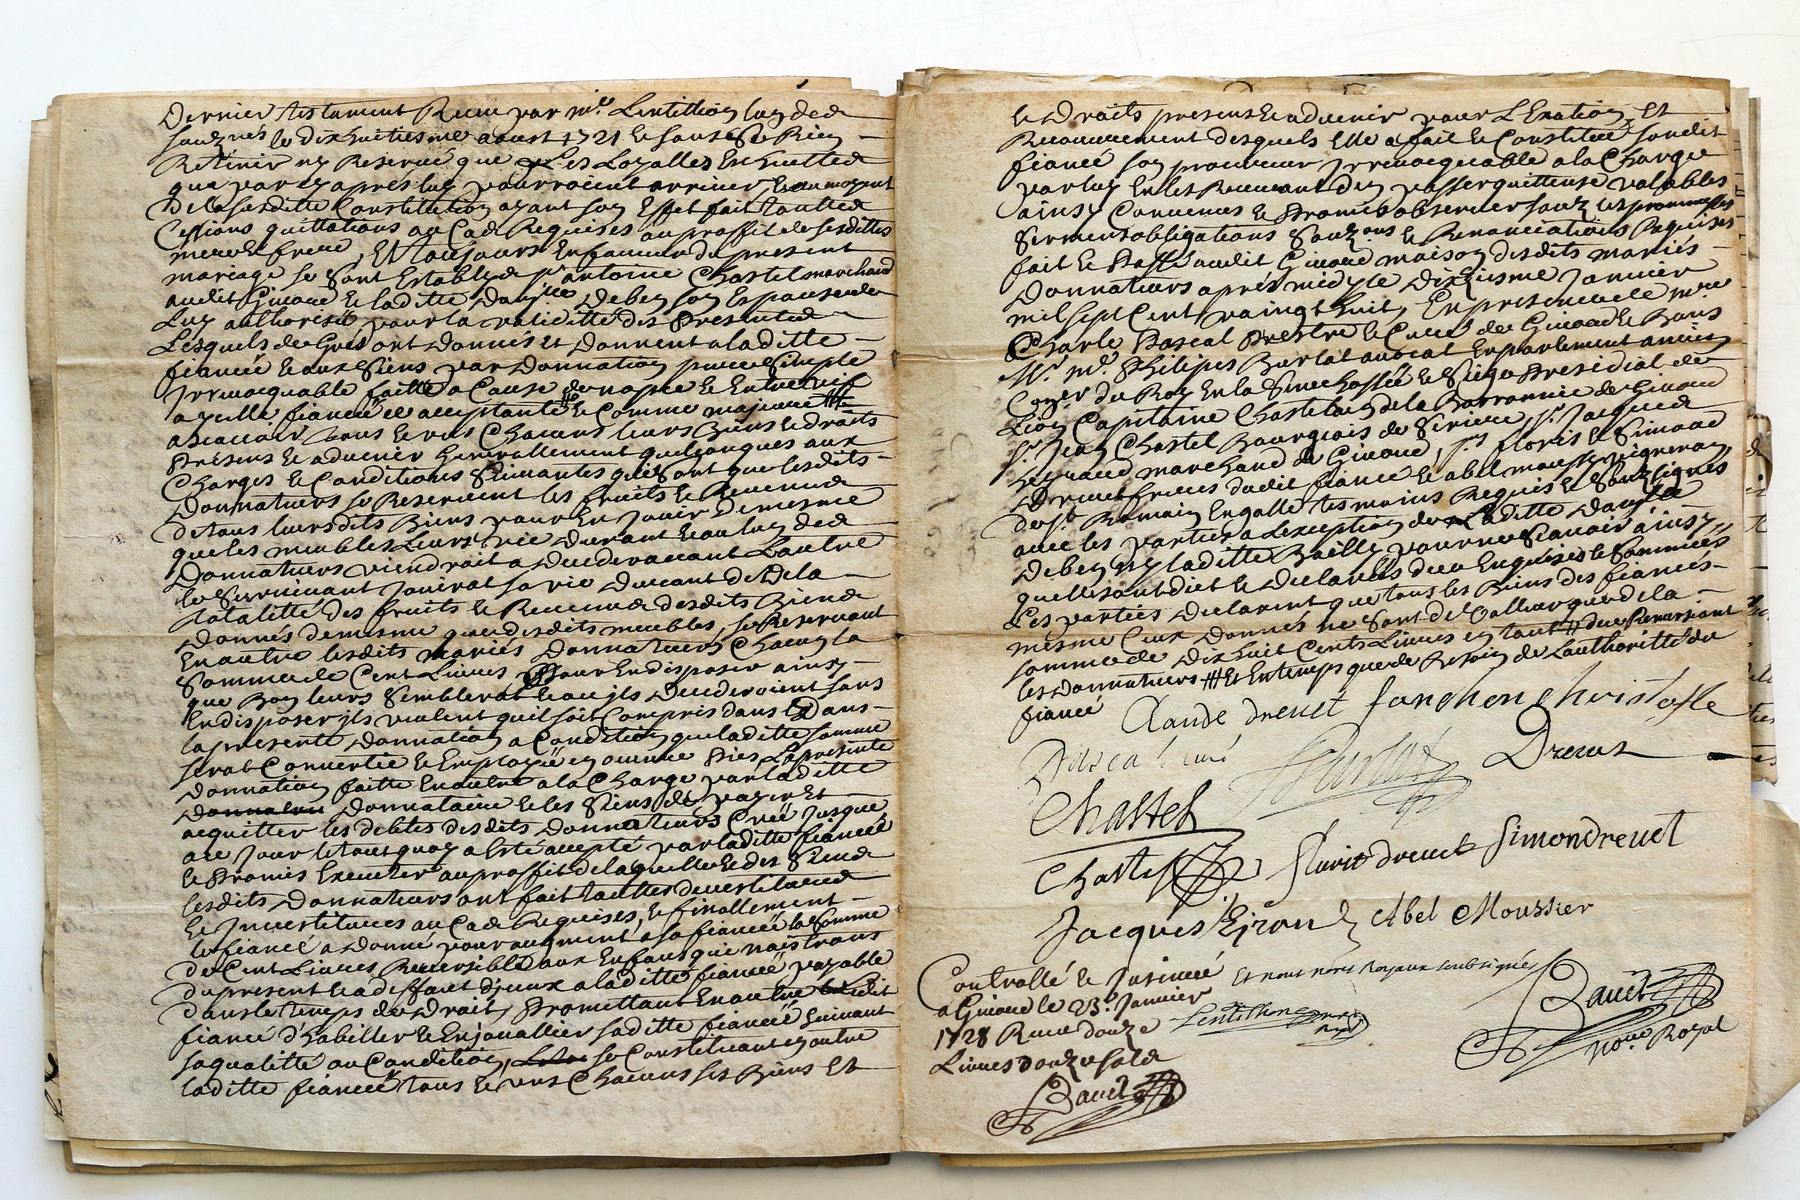 Dernier testament Receu par me Lentillion lun des
souz nés le dix huitiesme aoust 1721 et sans se Rien
Retenir ny Reservé que ses Loyalles Enchuttes
que par cy aprés luy pourroient arriver, Et au moyent
De la susditte Constitution ayant son Effet fait touttes
Cessions quittations au Cas Requises au proffit de sesdittes
mere et frere, Et toujours En faveur du present
mariage se sont Establys sr antoine Chastel marchand
audit Giraud et laditte Dauslle Deben son Espouse de
Luy authorisée pour la validitté des presentes
Lesquels de Gres ont Donnés et Donnent a laditte
fiancée et aux siens par Donnation pure et simple
Irrevocquable faitte a Cause de nopce et Entre vifs
a ycelle fiancée acceptante et Comme majeure
a scavoir tous et uns Chacuns leurs Biens et droits
presens et advenir generallement quelconques aux
Charges et Conditions suivantes qui sont que lesdits
Donnatteurs se Reservent les fruits et Revenus
de tous leurs dits Biens pour En Jouir De mesme
que les meubles Leurs vie Durant et ou lun des
Donnatteurs viendroit a Deceder avant Lautre
le survivant Jouirat sa vie Durant de Dela
totalitté des fruits et Revenus desdits Biens
Donnés de mesme que desdits meubles, se Reservant
En outre lesdits mariés Donnatteurs Chacun la
somme de Cent Livres Pour En disposer ainsy
que Bon leurs semblerat et ou ils Decederoient sans
En disposer ils veulent quil soit Compris dans Dans
la presente Donnation a Condition que laditte somme
serat Convertie et Employée en oeuvres Pies La presente
Donnation faitte En outre a la Charge par laditte
Donnataire et les siens de payer Et
acquitter les debtes desdits Donnatteurs Créé Jusque
a ce Jour le tout quoy a Esté accepté par laditte fiancée
et Promis Executer au proffit de laquelle et des siens
lesdits Donnatteurs ont fait touttes devestitures
et Investitures au Cas Requises, et finallement
le fiancé a Donné pour augment a sa fiancée la somme
de Cent Livres Reversible aux Enfans qui naistrons
du present et a deffaut d'yceux a laditte fiancée payable
dans le temps de Droit, Promettant En outre ledit
fiancé d'habiller et Enjoualler saditte fiancée suivant
sa qualitté ou Condition, se Constituant en outre
laditte fiancée tous et uns Chacuns ses Biens Et
et Droits presens et advenir pour L'Exation Et
Recouvrement desquels Elle a fait et Constitué sondit
fiancé son procureur Irrevocquable a la Charge
par luy En les Recevant d'en passer quittense valables
ainsy Convenus et Promis observer souz les promesses
serment obligations souz ons et Renonciations Requises
fait et Passé audit Giraud maison desdits mariés
Donnatteurs aprés midy le Dixiesme Janvier
mil sept Cent vaingt huit, En presence de mre
Charle Pascal Prestre et Curé de Giraud et Bans
Mr me Philipes Burlat avocat En parlement ancien
Coner du Roy En la Senechossée et Siege Presidial de
Lion Capitaine Chastelain de la Barronnie de Giraud
sr Jean Chastel Bourgeois de Riviere, sr Jacques
Leyraud marchand de Giraud, srs floris et Simond
Drevet freres dudit fiancé et abel moussy vigneron
de st Romain En galle tesmoins Requis et souz signés
avec les parties a L'exception de Laditte Dauslle
Deben ny laditte Bailly pour ne scavoir ainsy
quelles ont dit et declarés deu Enquises et sommées
Les parties declarent que tous les Biens des fiancés
mesme Ceux Donnés ne sont de valleur que de la
somme de Dix huit Cents Livres en tout due Remerssiant
les Donnatteurs Et En temps que de Besoin de L'authoritté du
fiancé Claude drevet fanchon Christofle
Pascal curé Burlat Drevet
Chastel
Chastel florit drevet Simon drevet
Jacques Eyron Abel Moussier
Controllé et Insinué Et nous nores Royaux soubsignés
a Giraud le 23e Janvier
1728 Receu douze Lentillion
Livres douze sols Bauet
nore Royal
Bauet